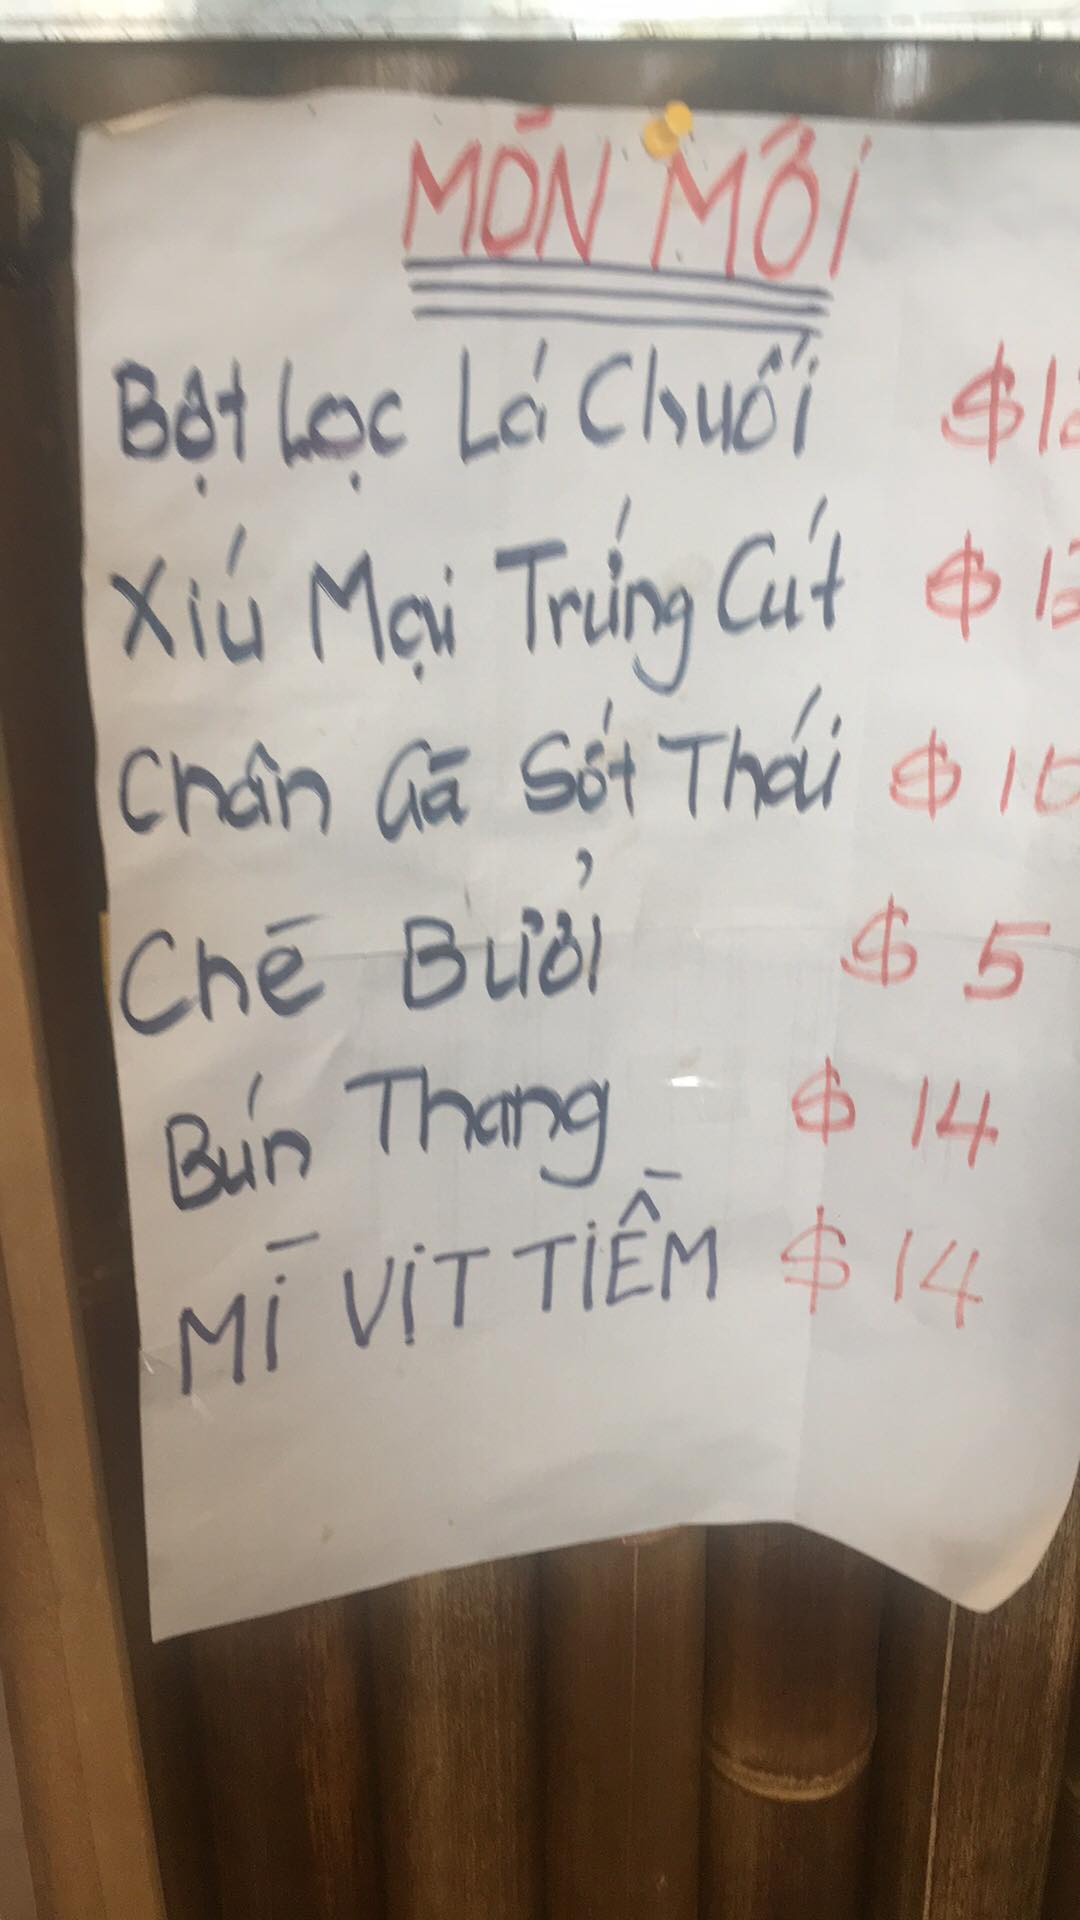 MÓN MỚI
Bột Lọc Lá Chuối
Xíu Mại Trứng Cút
Chân Gà Sốt Thái
Chè Bưởi $ 5
Bún Thang $ 14
MÌ VỊT TIỀM $ 14